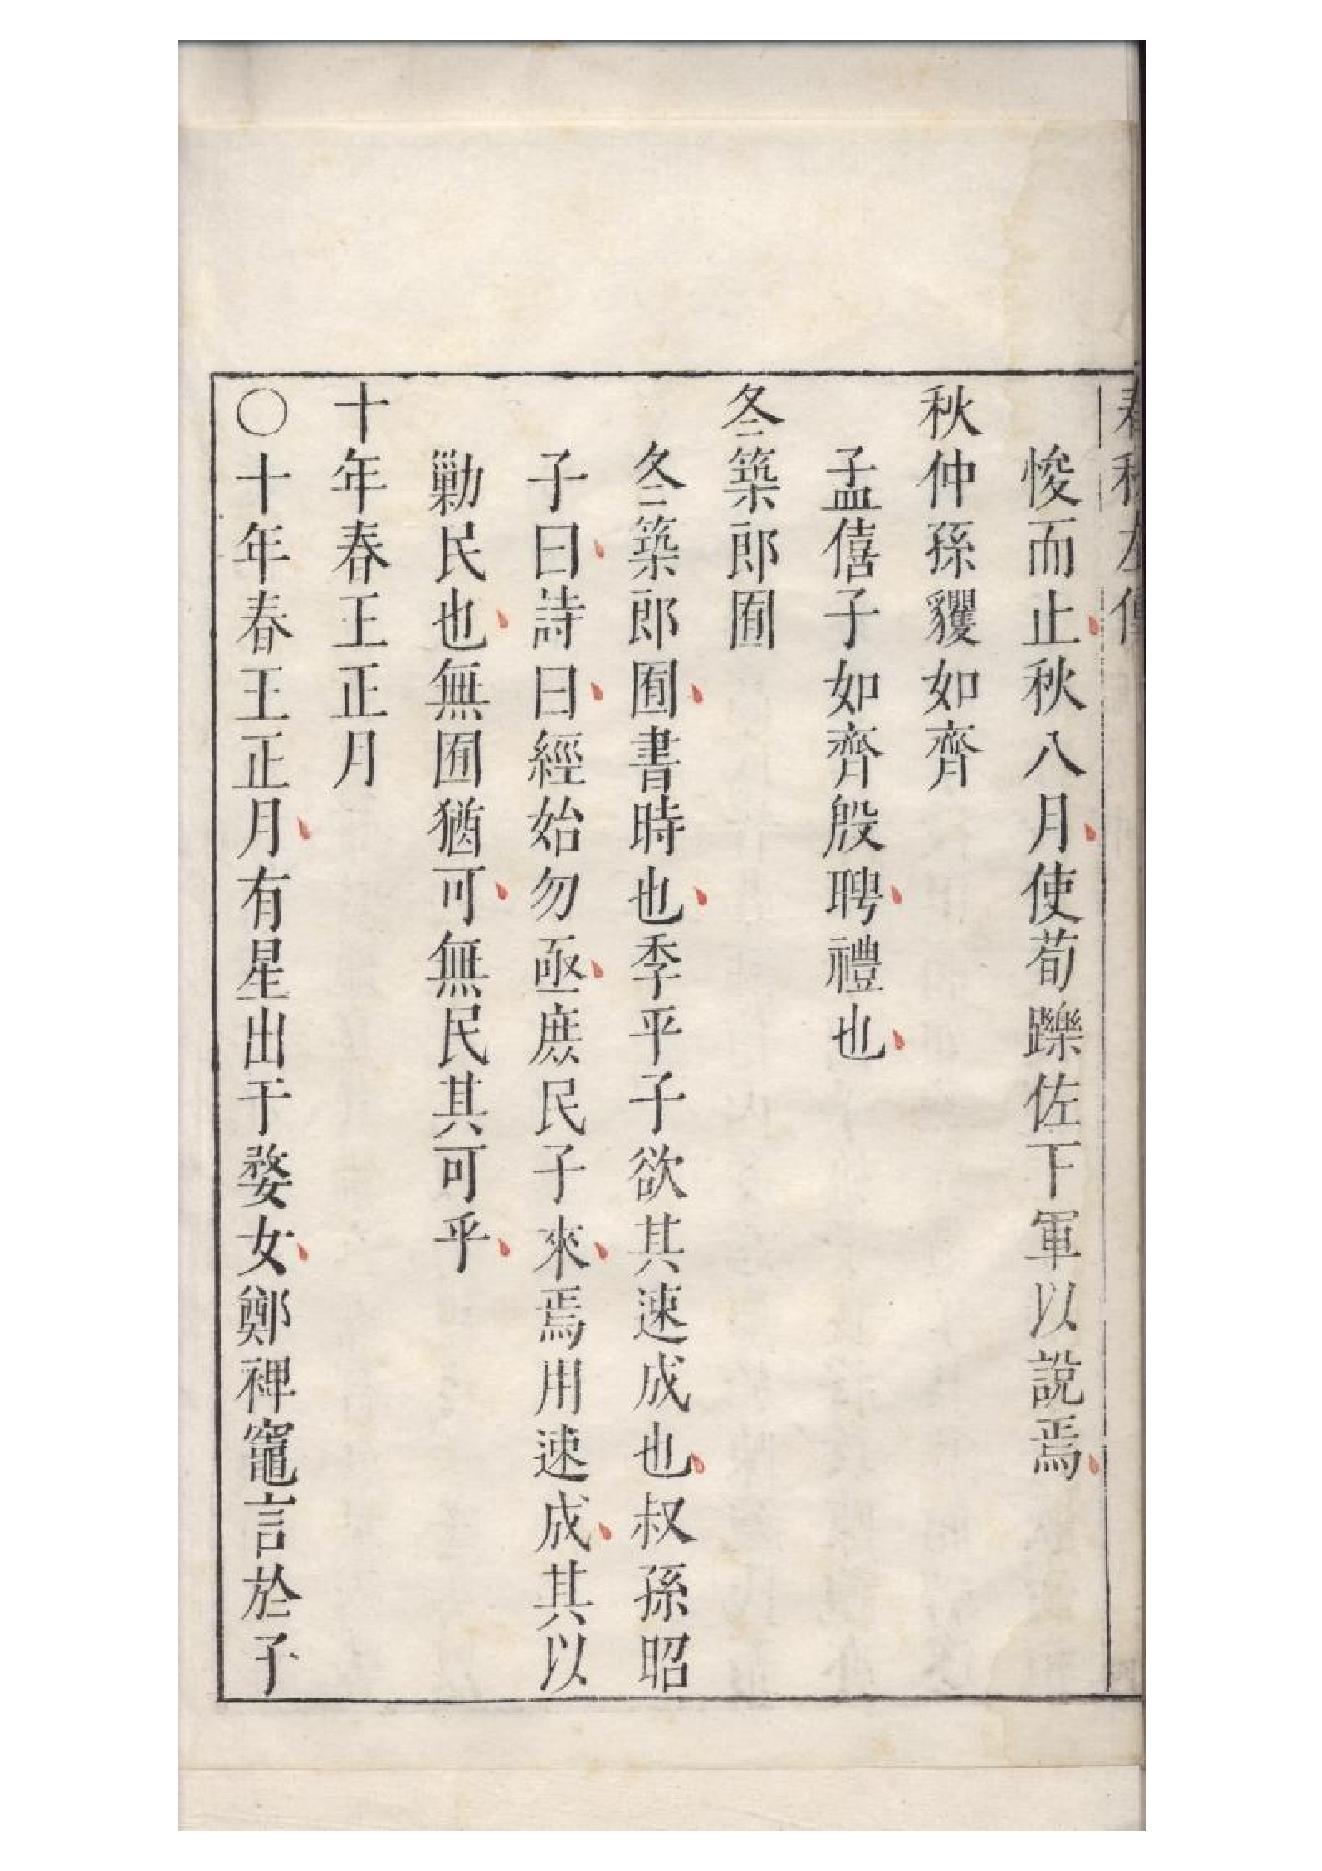 春秋左傳
悛而止秋八月使荀躒佐下軍以說焉
秋仲孫貜如齊
孟僖子如齊殷聘禮也
冬築郎囿
冬築郎囿書時也季平子欲其速成也叔孫昭
子曰詩曰經始勿亟庶民子來焉用速成其以
勦民也無囿猶可無民其可乎
十年春王正月
〇十年春王正月有星出于婺女鄭裨竈言於子